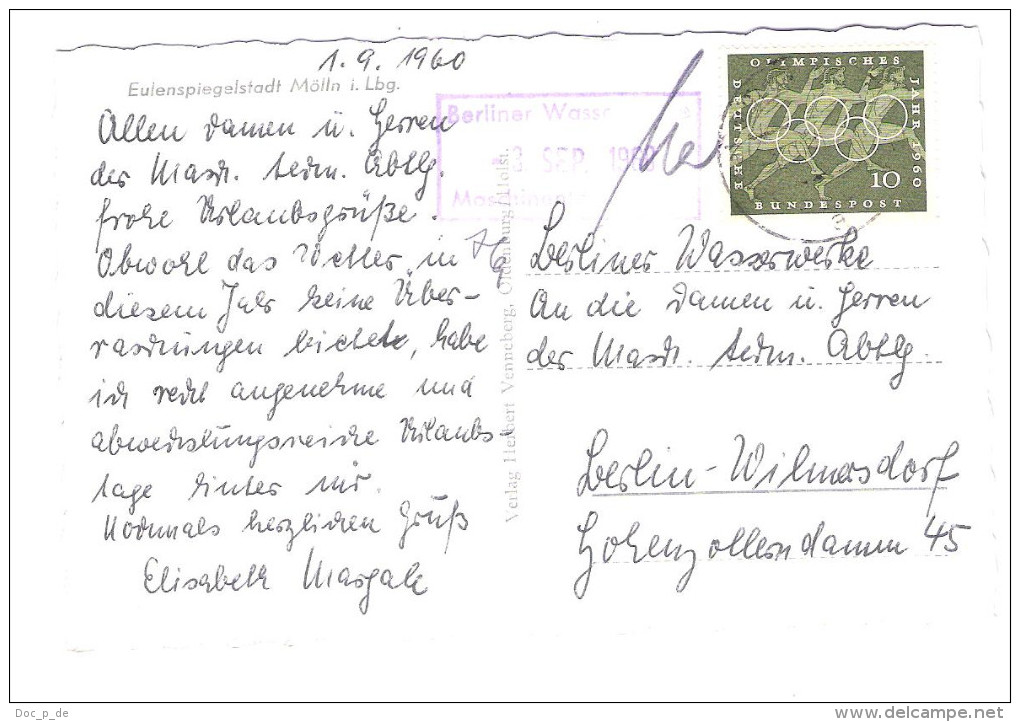 1.9.1960
Eulenspiegelstadt Mölln i. Lbg.
Allen Damen u. Herren
der Masch. techn. Abtlg.
frohe Urlaubsgrüße.
Obwohl das Wetter in
diesem Jahr keine Über-
raschungen bietet, habe
ich recht angenehme und
abwechslungsreiche Urlaubs-
tage hinter mir.
Nochmals herzlichen Gruß
Elisabeth
Verlag Herbert Venneberg, Oldenburg/Holst.
Berliner Wasse
3. SEP. 1960
OLYMPISCHES
JAHR 1960
DEUTSCHE
BUNDESPOST
10
Berliner Wasserwerke
An die Damen u. Herren
der Masch. techn. Abtlg.
Berlin-Wilmersdorf
Hohenzollerndamm 45
Doc_p_de
www.delcampe.net